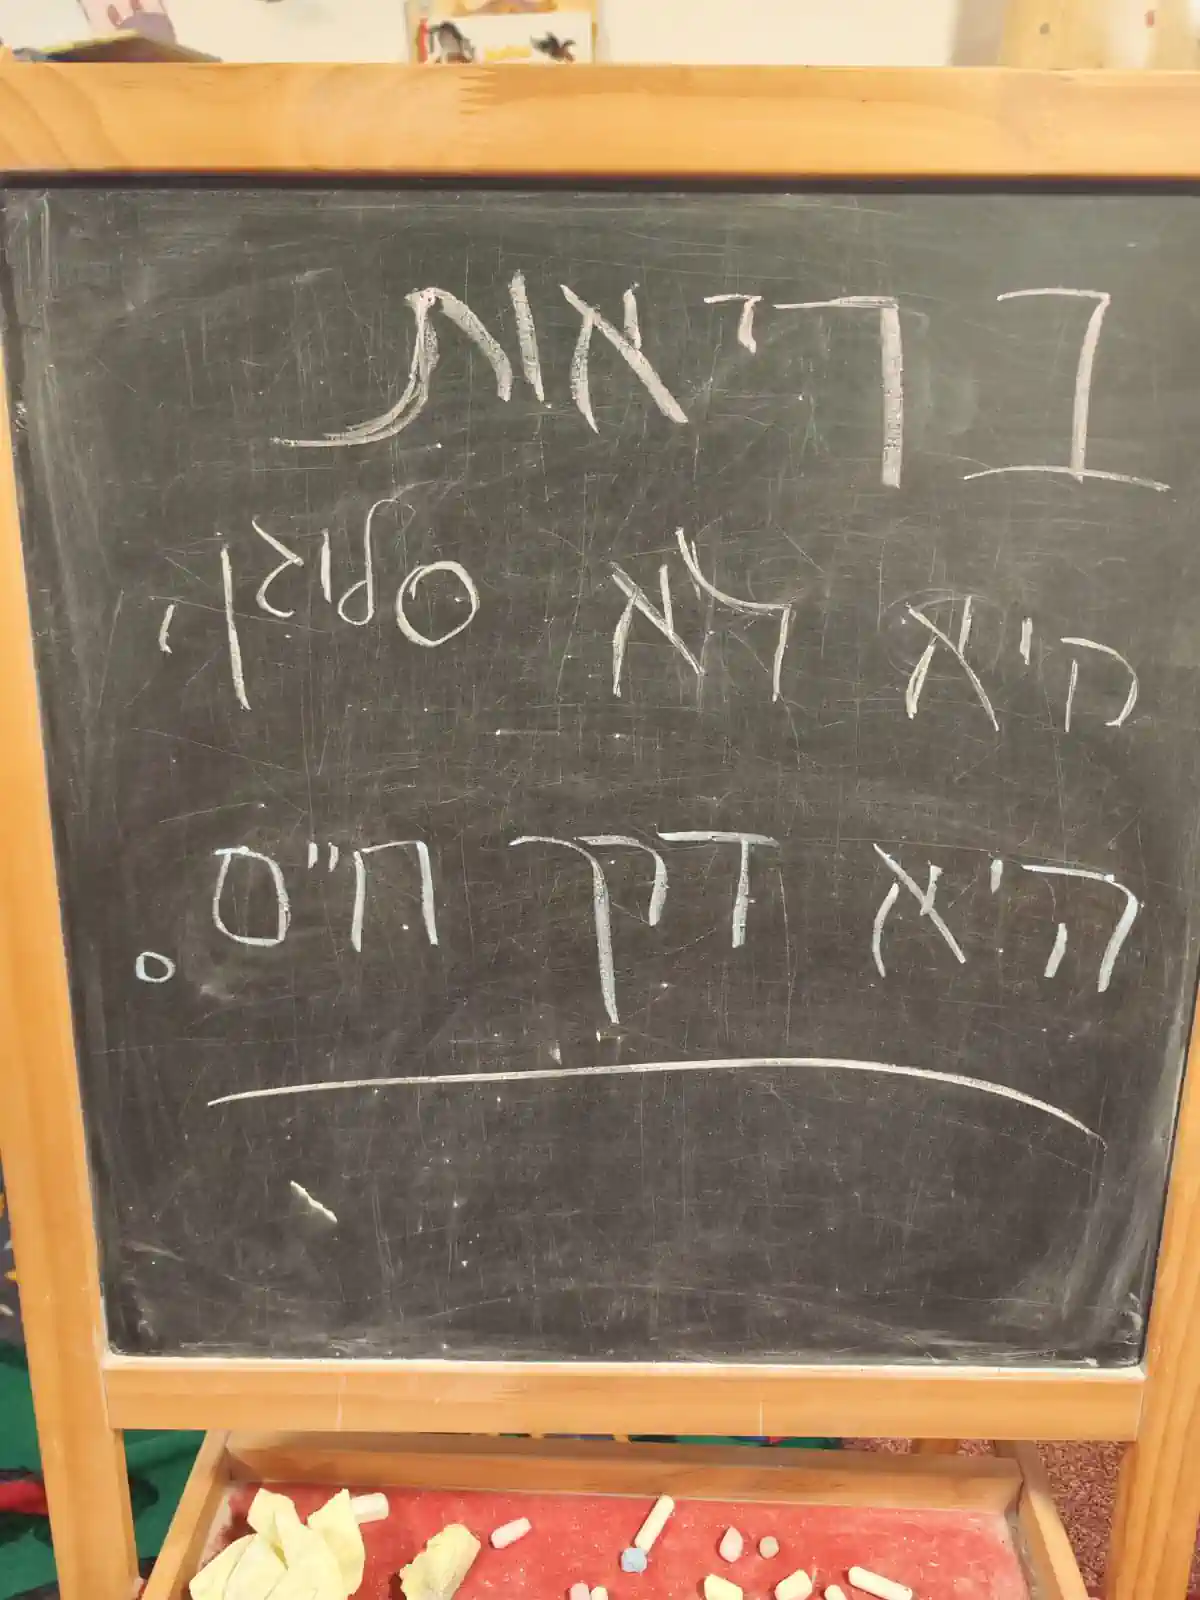 בריאות
היא לא סלוגן,
היא דרך חיים.